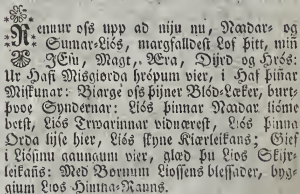 Rennur oss upp ad niju nu, Nædar- og
Sumar-Liós, margfalldest Lof þitt, min
JEsu, Magt, Æra, Dijrd og Hrós:
Ur Hafi Misgiorda hrópum vier, i Haf þijnar
Miskunar: Biarge oss þijner Blód-Læker, burt-
þvoe Syndernar: Liós þinnar Nædar lióme
betst, Liós Trwarinnar vidnærest, Liós þinna
Orda lijse hier, Liós skyne Kiærleikans; Gief
i Liósinu gaungum vier, glæd þu Lios Skijr-
leikans: Med Børnum Liossens blessader, byg-
gium Lios Himna-Ranns.